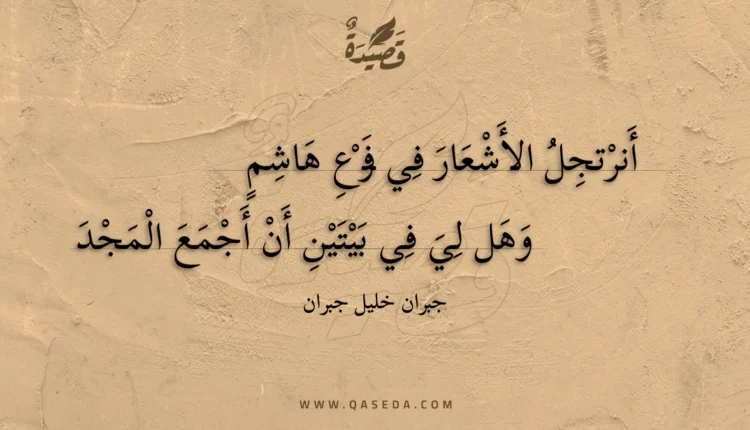 قَصِيدَةٌ
أَنرْتجِلُ الأَشْعَارَ فِي فَرْعِ هَاشِمٍ
وَهَل لِيَ فِي بَيْتَيْنِ أَنْ أَجْمَعَ الْمَجْدَ
جبران خليل جبران
WWW.QASEDA.COM